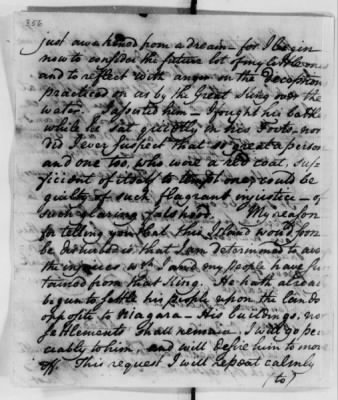 356
just awakened from a dream – for I begin
now to consider the future lot of my little ones
and to reflect with anger on the deception
practiced on us by the Great King over the
water. I assisted him – I fought his battles
while he sat quietly in his Forts, nor
did I ever suspect that so great a person
and one too, who wore a red coat, suf-
ficient of itself to tempt one, could be
guilty of such flagrant injustice – of
such glaring falshood. My reason
for telling you that this Island would soon
be disturbed is that I am determined to
the injuries wch I and my people have sus
tained from that King. He hath alrea
begun to settle his people upon the lands
opposite to Niagara – His buildings, nor
settlements shall remain. I will go pea
ciably to him, and will desire him to move
off. This request I will repeat calmly
(to)